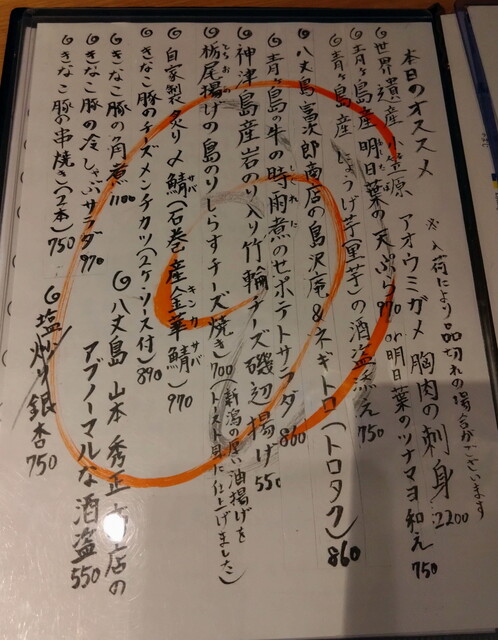 本日のオススメ
※入荷により品切れの場合がございます
世界遺産 小笠原 アオウミガメ 胸肉の刺身 2200
青ヶ島産 明日葉の天ぷら 770 or 明日葉のツナマヨ和え 750
青ヶ島産 しょうげ芋(里芋)の酒盗添え 750
八丈島 富次郎商店の島沢庵 & ネギトロ (トロタク) 860
青ヶ島の牛の時雨煮のせポテトサラダ 860
神津島産岩のり入り竹輪チーズ磯辺揚げ 550
栃尾揚げの島のりしらすチーズ焼き 700 (新潟の厚い油揚げをトースト風に仕上げました)
自家製 炙り〆鯖 (石巻産金華鯖) 970
きなこ豚のチーズメンチカツ (2ケ・ソース付) 890
きなこ豚の角煮 1100
きなこ豚の冷しゃぶサラダ 970
きなこ豚の串焼き (2本) 750
八丈島 山本 秀正商店の
アブノーマルな酒盗 550
塩炒り銀杏 750